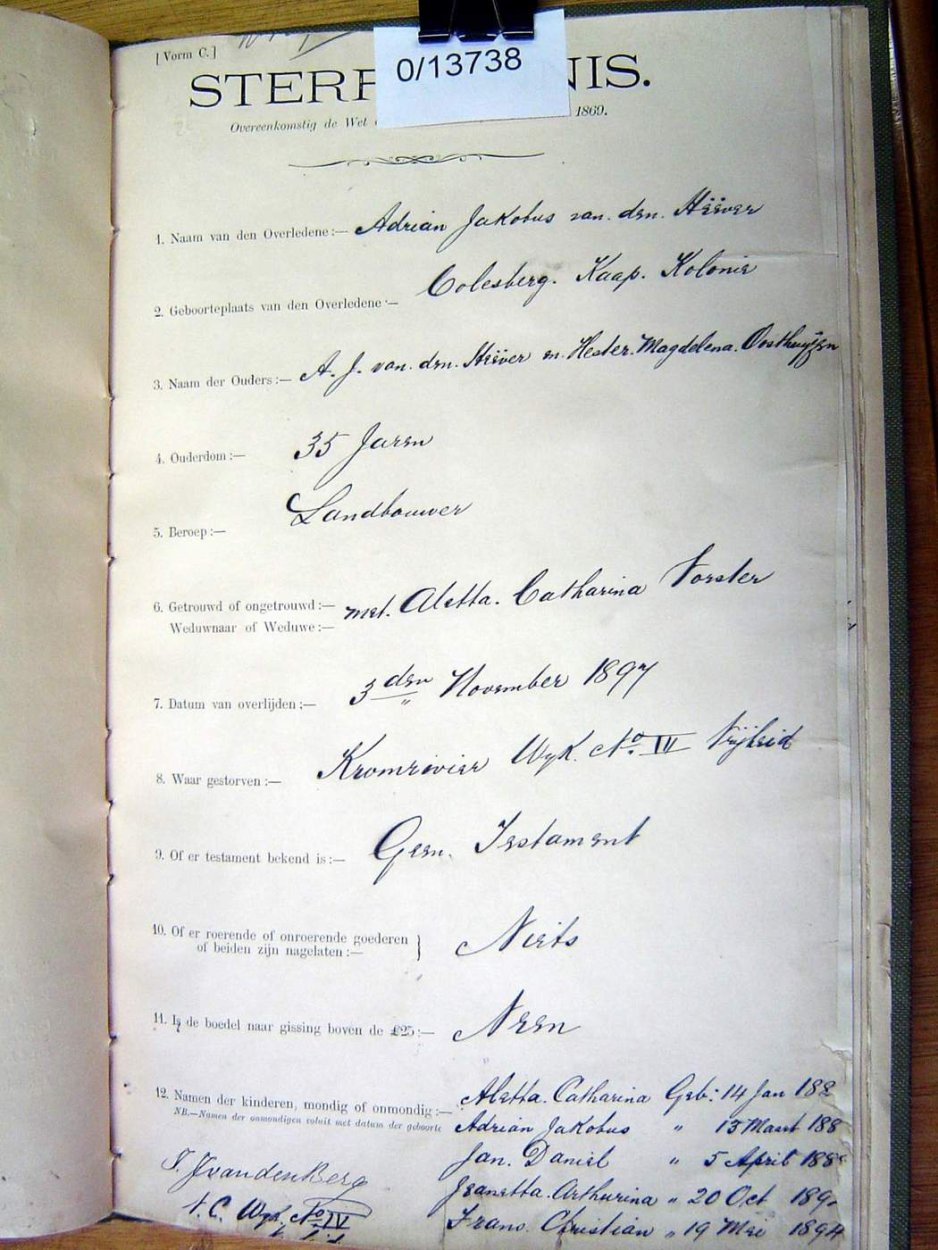 [Vorm C.]
0/13738
STERF NIS.
Overeenkomstig de Wet 1869.
1. Naam van den Overledene:— Adrian Jakobus van den Heever
2. Geboorteplaats van den Overledene— Colesberg. Kaap. Kolonie
3. Naam der Ouders:— A. J. van den Heever en Hester Magdelena Oosthuyzen
4. Ouderdom:— 35 Jaren
5. Beroep:— Landbouwer
6. Getrouwd of ongetrouwd:— met Aletta. Catharina Vorster
Weduwnaar of Weduwe:—
7. Datum van overlijden;— 3den November 1897
8. Waar gestorven:— Kromrivier Wyk. No. IV Vrijheid
9. Of er testament bekend is:— Geen. Testament
10. Of er roerende of onroerende goederen } Niets
of beiden zijn nagelaten:—
11. Is de boedel naar gissing boven de £25:— Neen
12. Namen der kinderen, mondig of onmondig:— Aletta. Catharina Geb: 14 Jan 188
NB.—Namen der onmondigen voluit met datum der geboorte Adrian Jakobus " 15 Maart 188
Jan. Daniel " 5 April 188
Jeanetta. Arthurina " 20 Oct 189
Frans. Christian " 19 Mei 1894
J. J van den Berg
V. C. Wyk. No IV